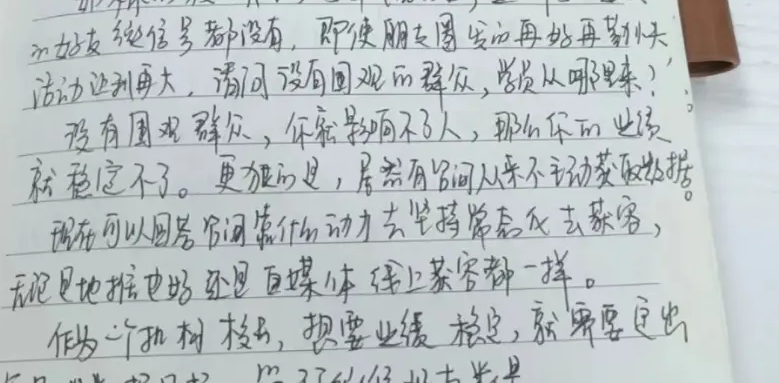 的好友微信号都没有，即使朋友圈发的再好再
活动让利再大，请问没有围观的群众，学员从哪里来？
没有围观群众，你就影响不了人，那么你的业绩
就稳定不了。更加的是，居然有公司从来不主动获取数据。
现在可以回答公司靠什么动力去坚持常态化去获客，
无论是地推也好还是自媒体线上获客都一样。
作为一个机构校长，想要业绩稳定，就需要走出